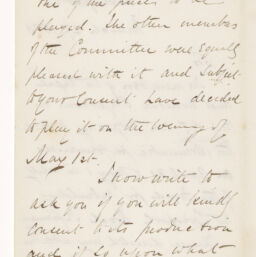 one of the pieces to be
played. The other members
of the Committee were equally
pleased with it and subject
to your consent have decided
to play it on the evening of
May 1st.
I now write to
ask you if you will kindly
consent to its production
and if so upon what